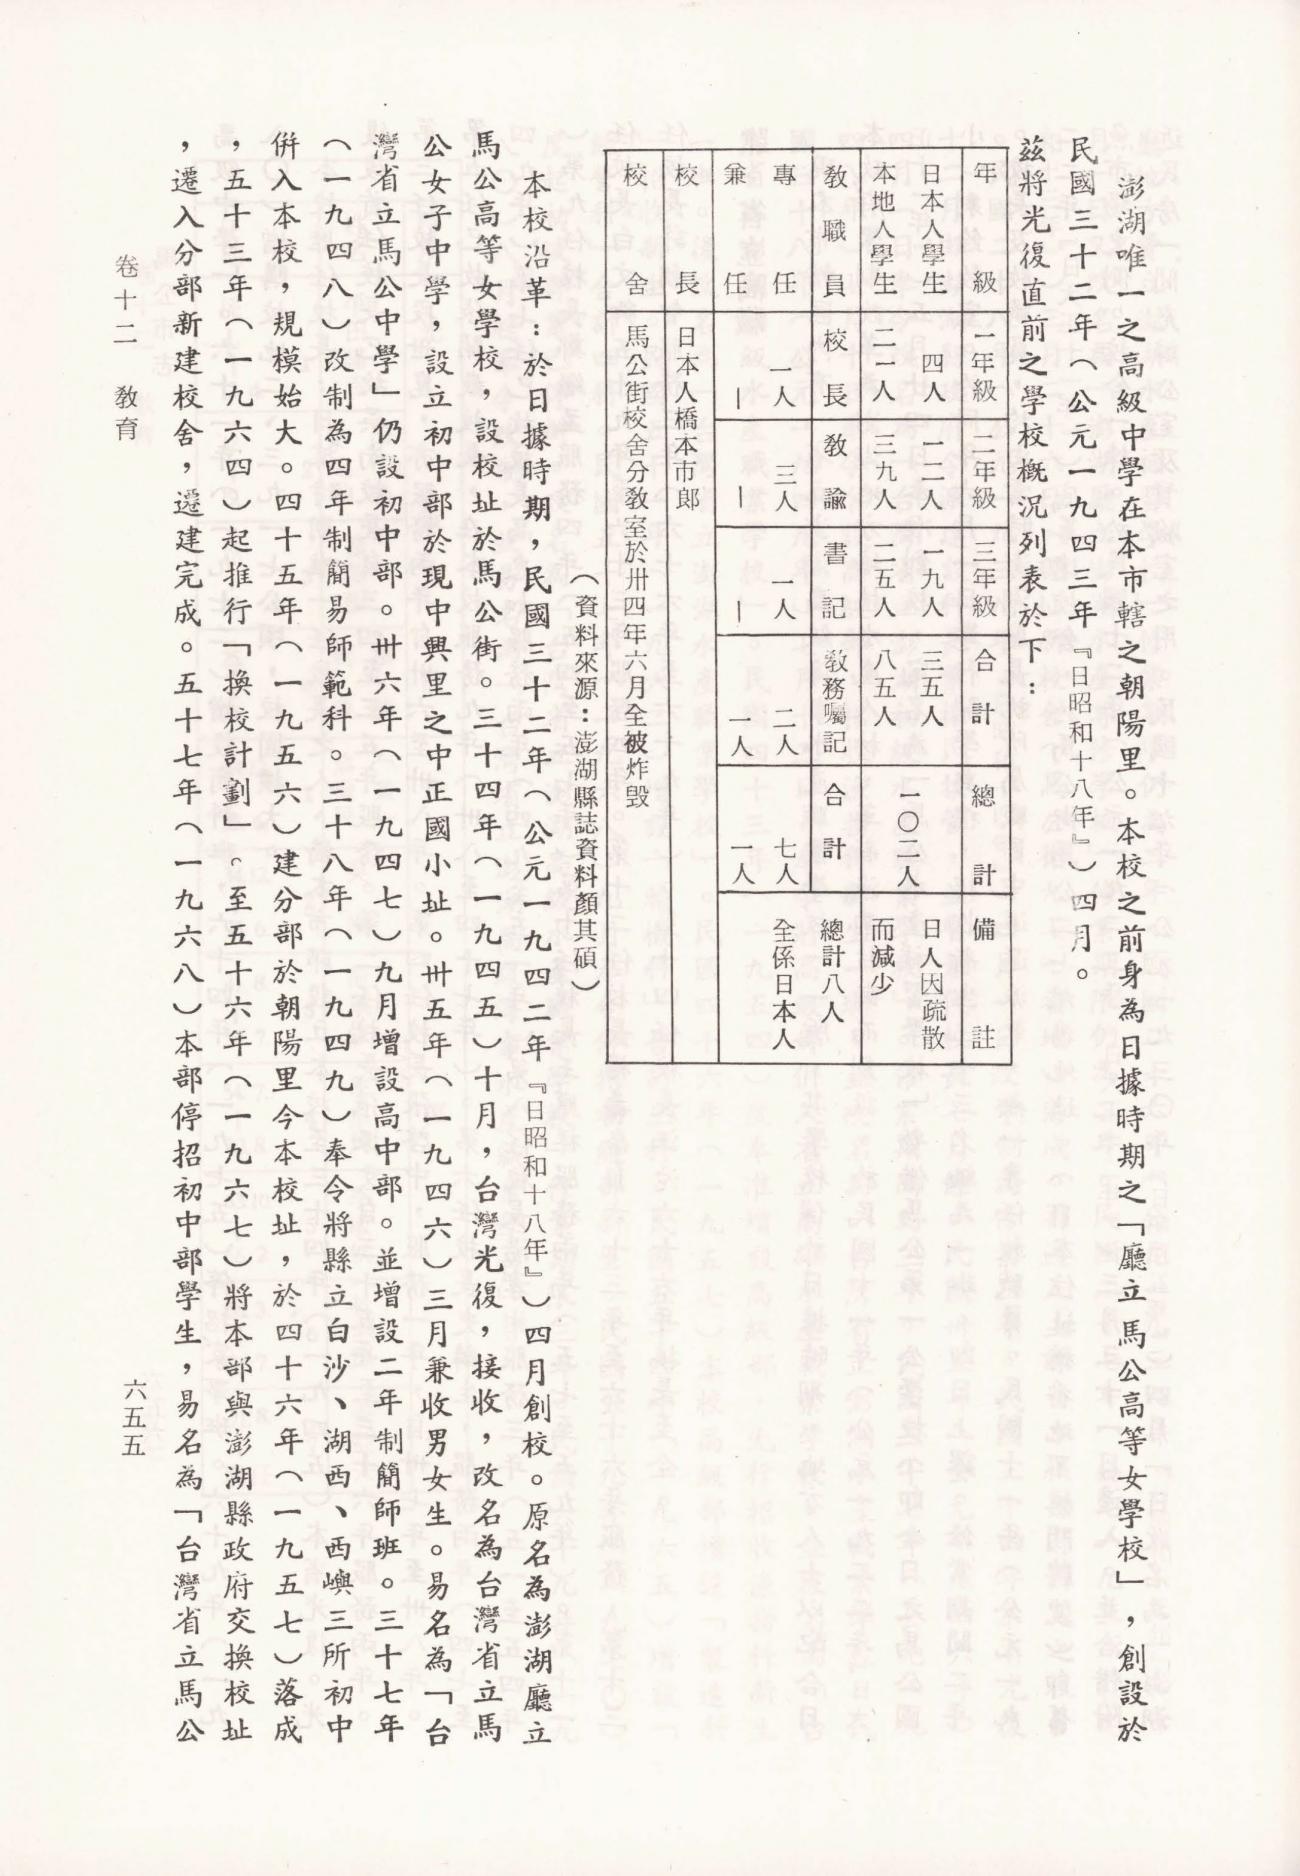 澎湖唯一之高級中學在本市轄之朝陽里。本校之前身為日據時期之「廳立馬公高等女學校」，創設於
民國三十二年（公元一九四三年『日昭和十八年』）四月。
茲將光復直前之學校概況列表於下：
年級 一年級 二年級 三年級 合計 總計 備註
日本人學生 四人 一二人 一九人 三五人 一〇二人 日人因疏散
本地人學生 二一人 三九人 二五人 八五人 而減少
教職員 校長 教諭 書記 教務囑記 合計 總計八人
專任 一人 三人 一人 二人 七人 全係日本人
兼任 － － － 一人 一人
校長 日本人橋本市郎
校舍 馬公街校舍分教室於卅四年六月全被炸毀
（資料來源：澎湖縣誌資料顏其碩）
本校沿革：於日據時期，民國三十二年（公元一九四二年『日昭和十八年』）四月創校。原名為澎湖廳立
馬公高等女學校，設校址於馬公街。三十四年（一九四五）十月，台灣光復，接收，改名為台灣省立馬
公女子中學，設立初中部於現中興里之中正國小址。卅五年（一九四六）三月兼收男女生。易名為「台
灣省立馬公中學」仍設初中部。卅六年（一九四七）九月增設高中部。並增設二年制簡師班。三十七年
（一九四八）改制為四年制簡易師範科。三十八年（一九四九）奉令將縣立白沙、湖西、西嶼三所初中
併入本校，規模始大。四十五年（一九五六）建分部於朝陽里今本校址，於四十六年（一九五七）落成
，五十三年（一九六四）起推行「換校計劃」。至五十六年（一九六七）將本部與澎湖縣政府交換校址
，遷入分部新建校舍，遷建完成。五十七年（一九六八）本部停招初中部學生，易名為「台灣省立馬公
卷十二　教育
六五五